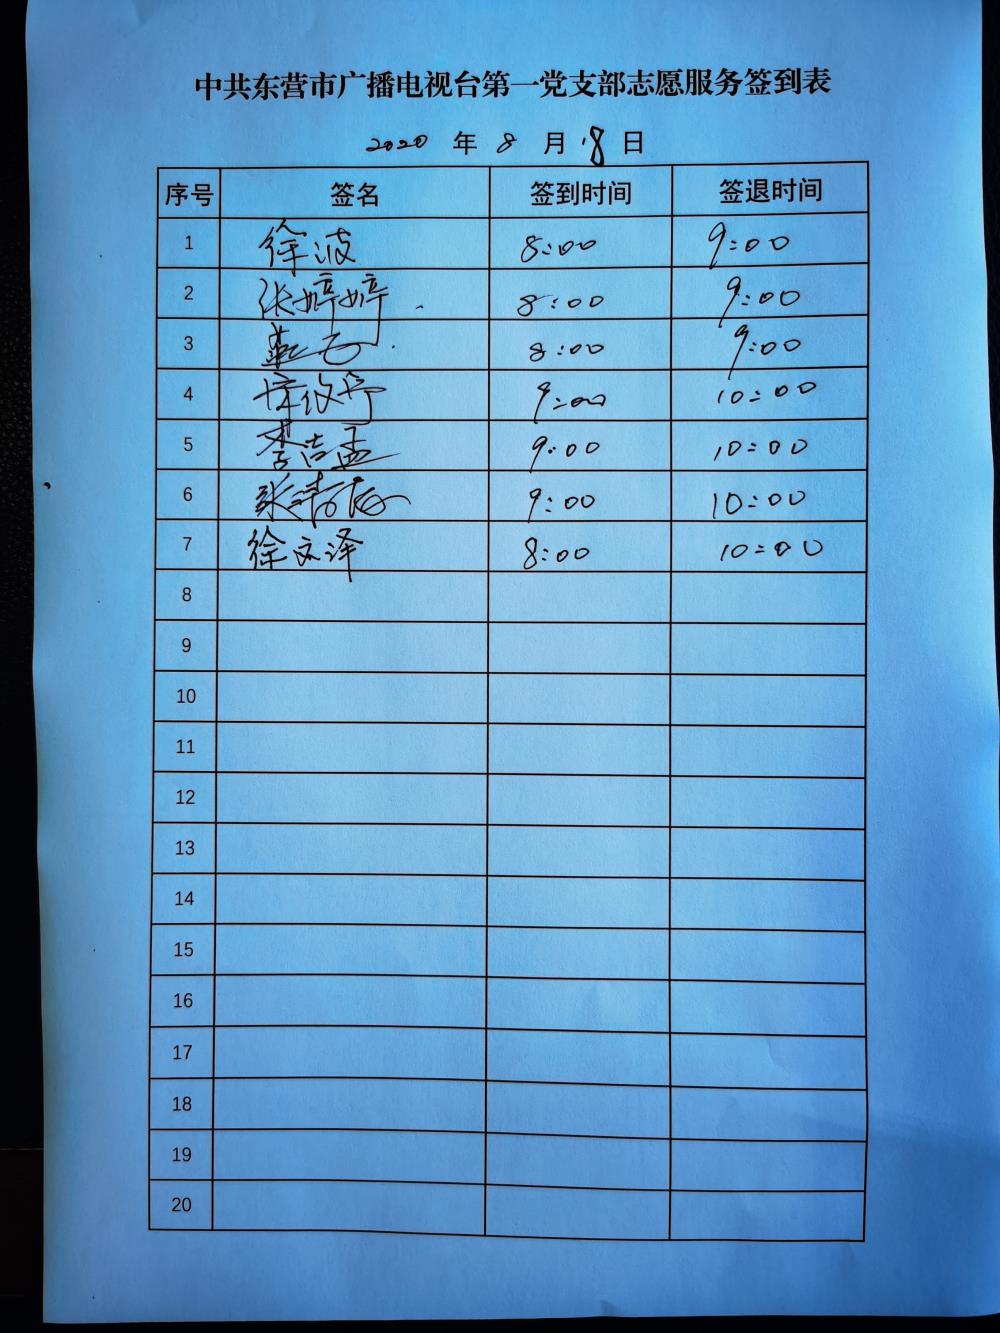 中共东营市广播电视台第一党支部志愿服务签到表
2020 年 8 月 18 日
序号 签名 签到时间 签退时间
1 徐波 8:00 9:00
2 张婷婷 8:00 9:00
3 8:00 9:00
4 9:00 10:00
5 李洁孟 9:00 10:00
6 张 9:00 10:00
7 徐文泽 8:00 10:00
8
9
10
11
12
13
14
15
16
17
18
19
20